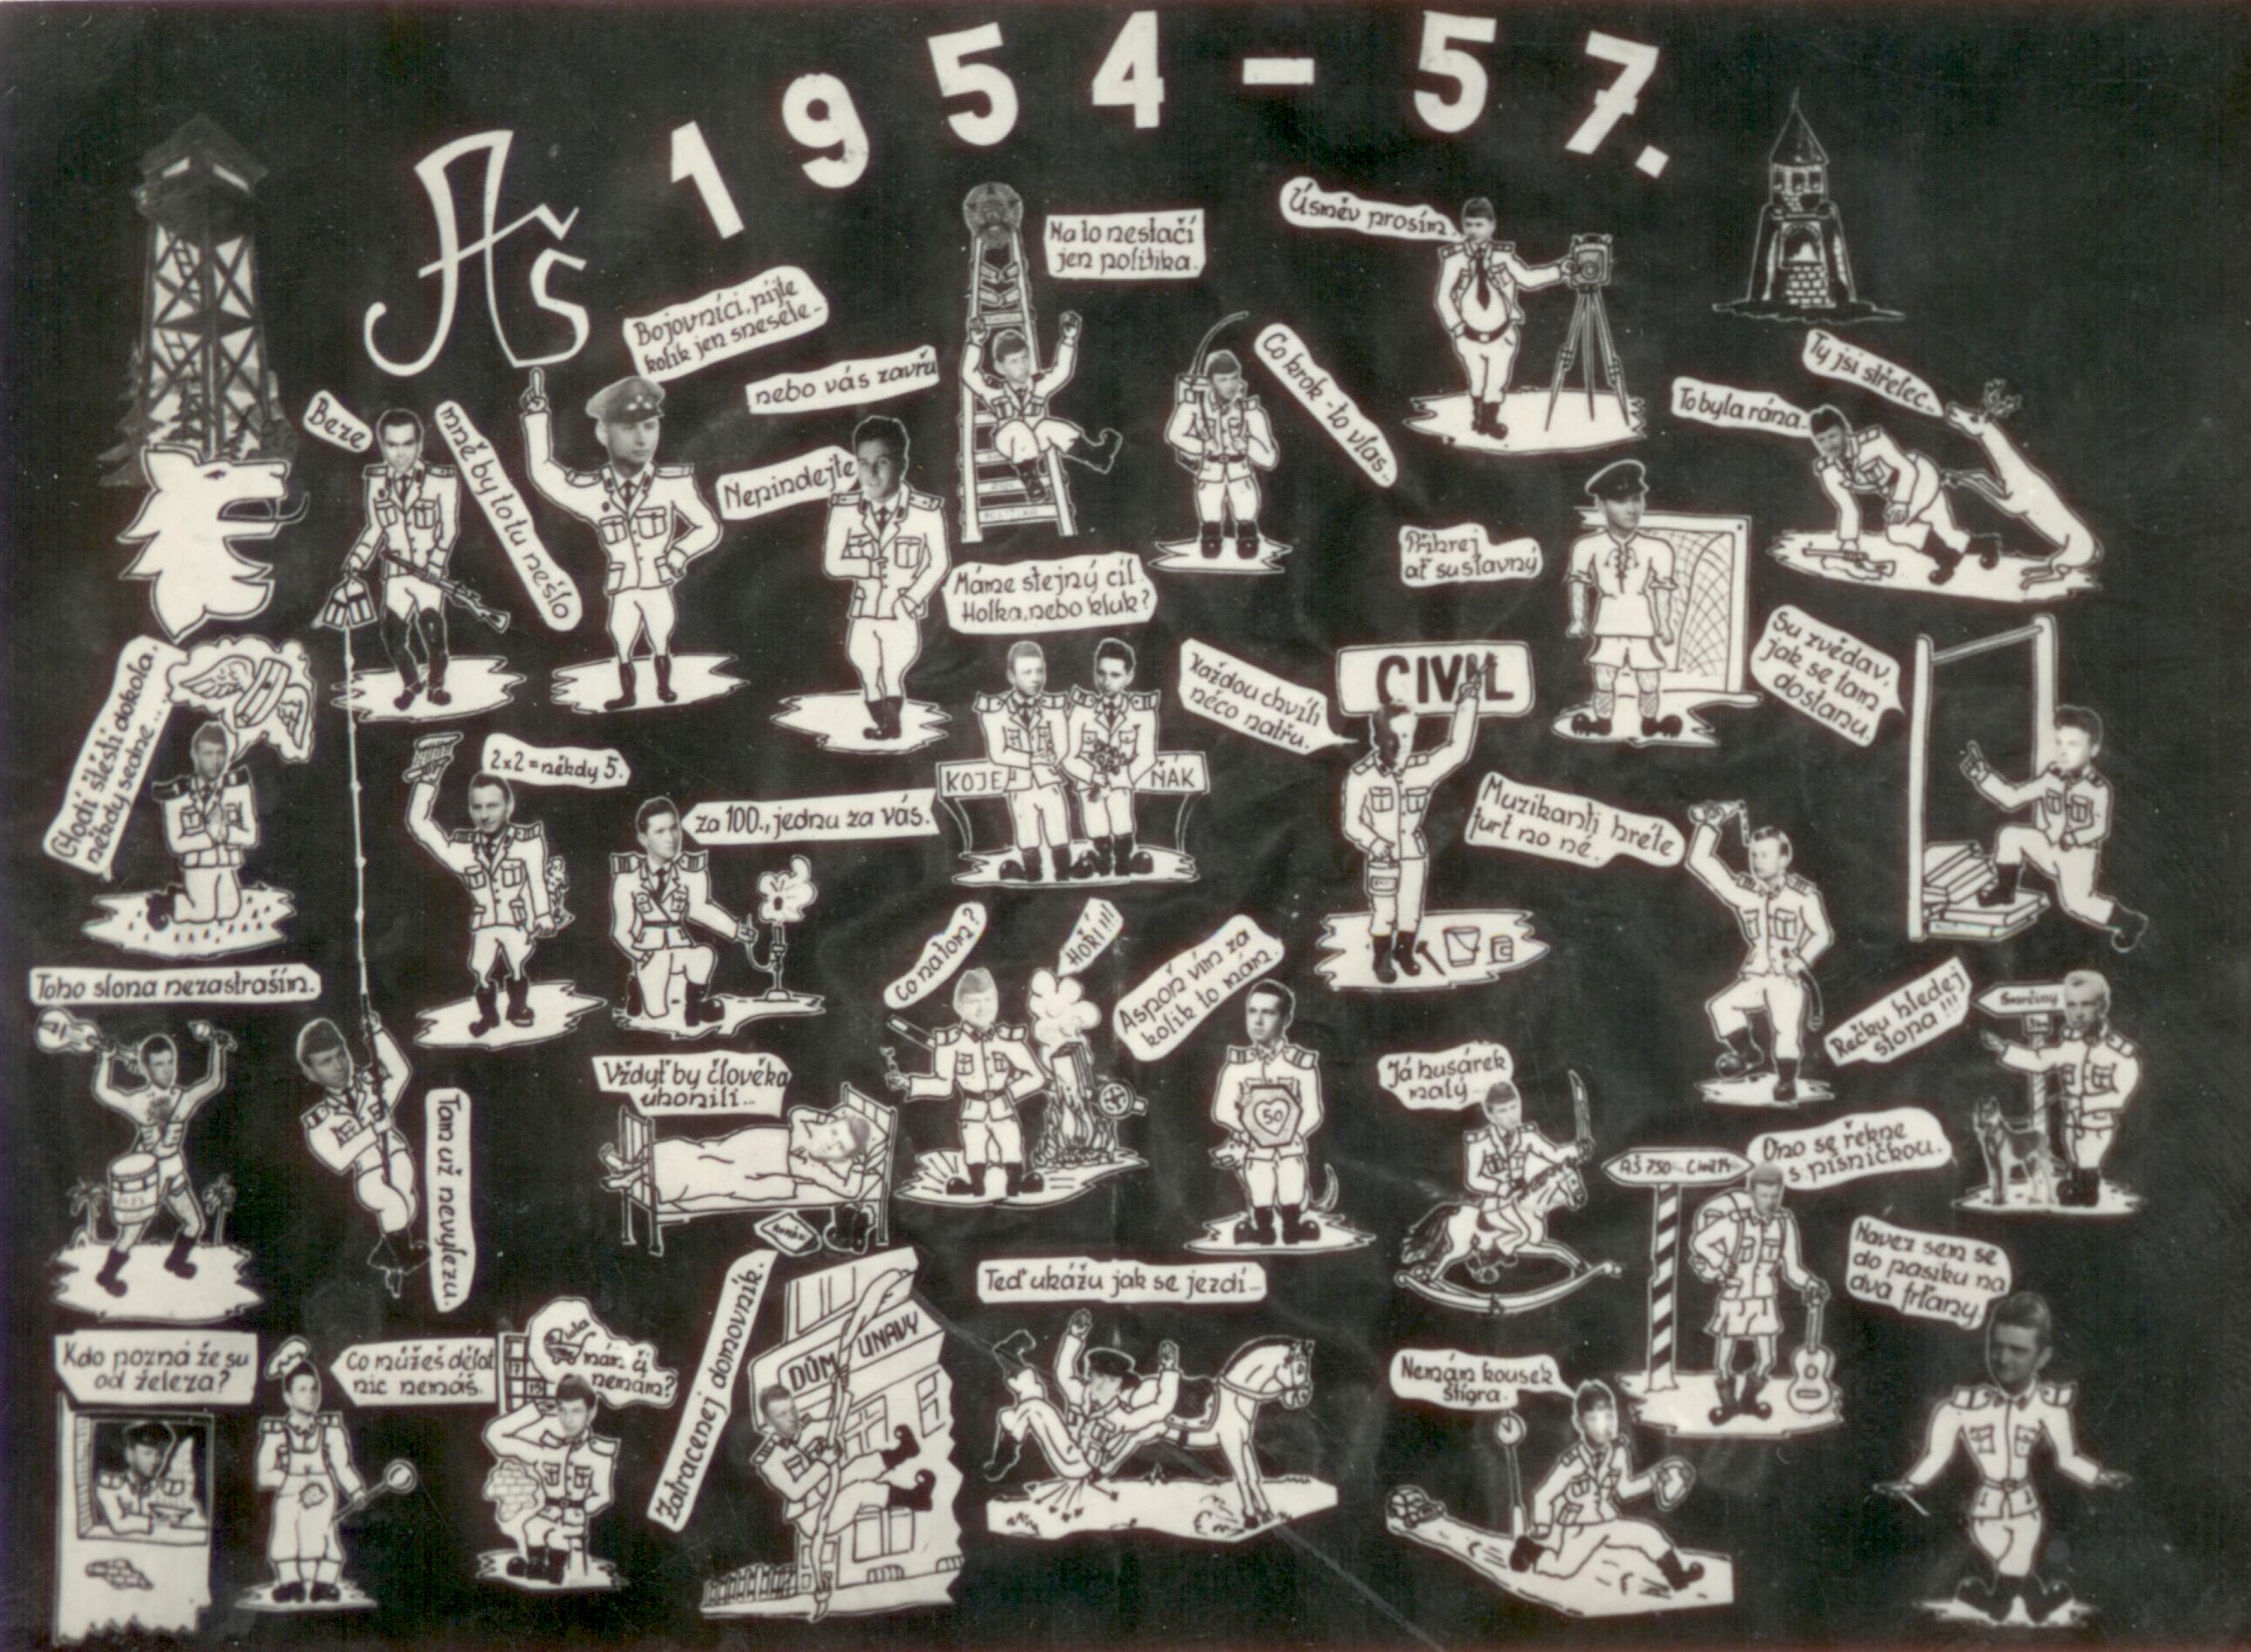 1954-57.
Aš
Na to nestačí
jen politika.
Úsměv prosím.
Bojovníci, pijte
kolik jen snesete-
nebo vás zavřu
Beze
mně by to tu nešlo
Nepindejte
Co krok - to vlas..
To byla rána.
Ty jsi střelec..
Přihrej
ať su slavný
Máme stejný cíl.
Holka, nebo kluk?
KOJE
ŇÁK
Každou chvíli
něco natřu.
CIVIL
Su zvědav,
jak se tam
dostanu.
Chodí štěstí dokola,
někdy sedne...
2x2=někdy 5.
za 100., jednu za vás.
Muzikanti hréte
furt no né.
Toho slona nezastraším.
Co na tom?
HOŘÍ!!!
Aspoň vím za
kolik to mám.
50
Rečku hledej
slona!!!
Smrčiny
Tam už nevylezu.
Vždyť by člověka
uhonili...
Já husárek
malý..
AŠ 750
Ono se řekne
s písničkou.
Navez sem se
do pasiku na
dva frťany
Kdo pozná že su
od železa?
Co můžeš dělat
nic nemáš.
mám či
nemám?
Zatracenej domovník.
DŮM ÚNAVY
Teď ukážu jak se jezdí...
Nemám kousek
štigra.